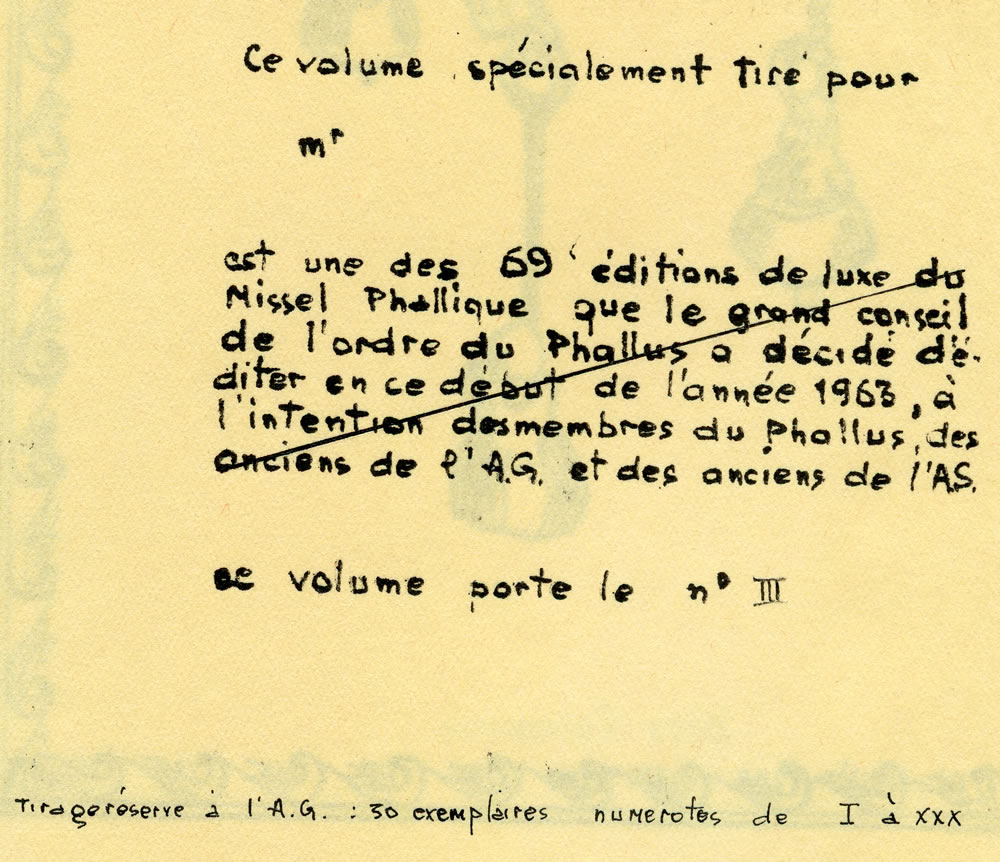 Ce volume spécialement tiré pour
mr
est une des 69 éditions de luxe du
Missel Phallique que le grand conseil
de l'ordre du Phallus a décidé d'é-
diter en ce début de l'année 1963, à
l'intention desmembres du Phallus, des
anciens de l'A.G. et des anciens de l'AS.
ce volume porte le n° III
Tirage réservé à l'A.G. : 30 exemplaires numerotés de I à XXX